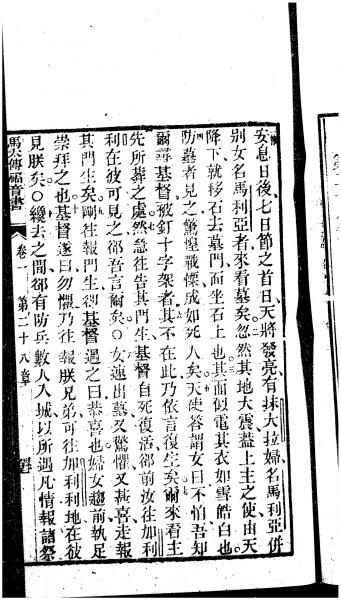 安息日後七日節之首日天將發亮有抹大拉婦名馬利亞併
別女名馬利亞者來看墓矣忽然其地大震蓋上主之使由天
降下就移石去墓門而坐石上也其面似電其衣如雪皓白也
防墓者見之驚惶戰慄成如死人矣天使答謂女曰不怕吾知
爾尋基督被釘十字架者其不在此乃依言復生矣爾來看主
先所葬之處然急往告其門生基督自死復活卻前汝往加利
利在彼可見之卻吾言爾矣○女遂出墓又驚懼又甚喜走報
其門生矣剛往報門生卻基督遇之曰恭喜也婦女趨前執足
崇拜之也基督遂曰勿懼乃往報朕兄弟可往加利利地在彼
見朕矣○纔去之間卻有防兵數人入城以所遇凡情報諸祭
馬太傳福音書 卷一 第二十八章